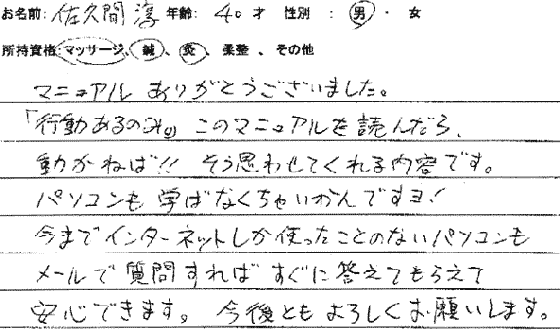 お名前: 佐久間 淳 年齢: 40才 性別 : 男 ・ 女
所持資格: マッサージ、鍼、灸、柔整、その他
マニュアルありがとうございました。
「行動あるのみ。」このマニュアルを読んだら、
動かねば!! そう思わせてくれる内容です。
パソコンも学ばなくちゃいかんですヨ!
今までインターネットしか使ったことのないパソコンも
メールで質問すればすぐに答えてもらえて
安心できます。今後ともよろしくお願いします。